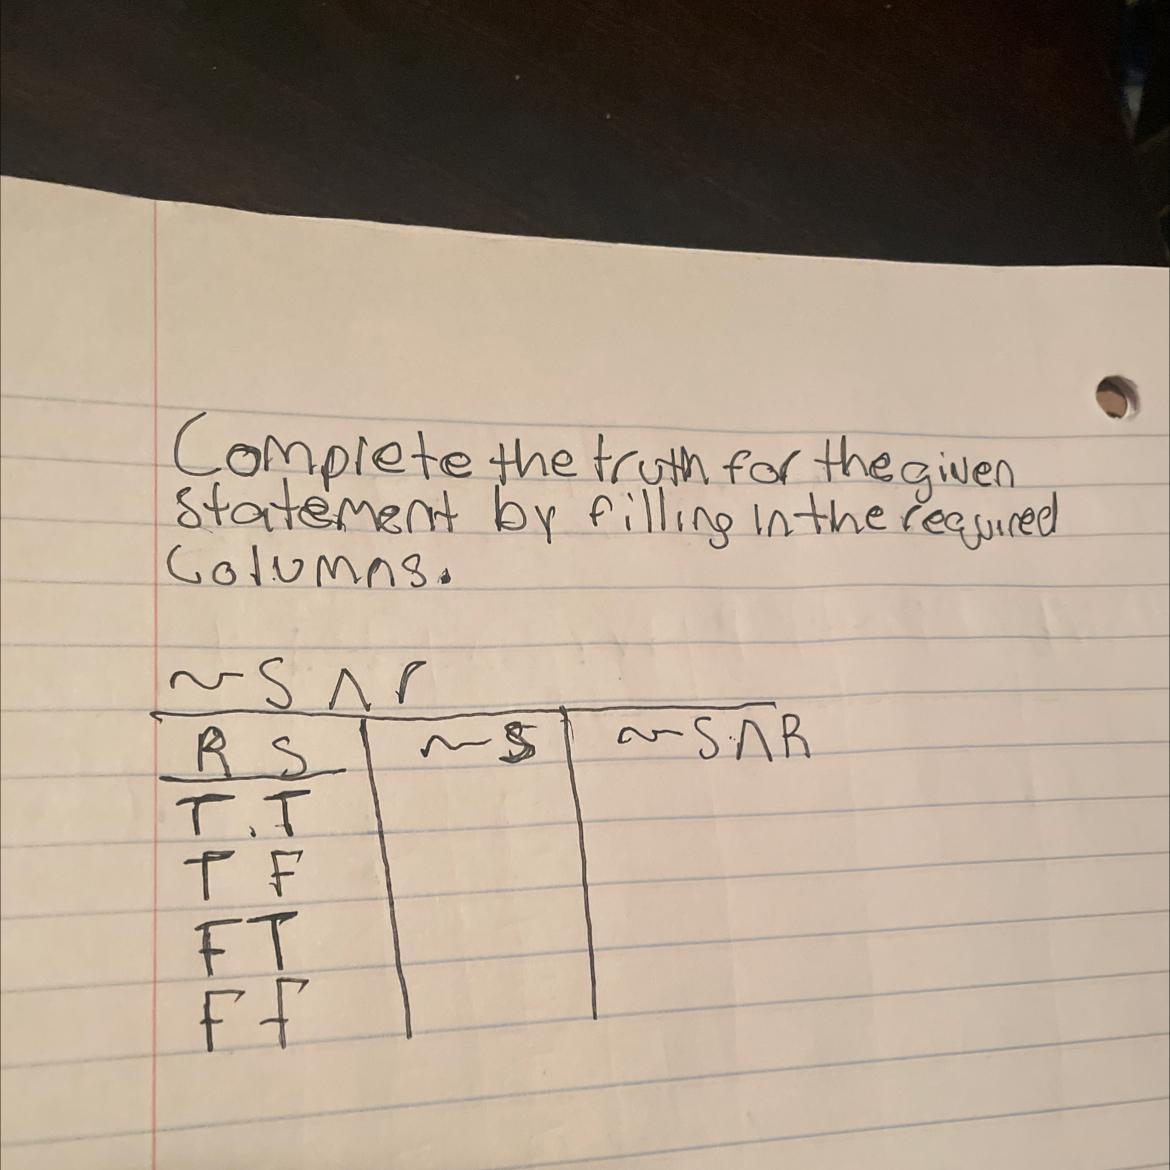 Complete the truth for the given
statement by filling in the required
Columns.
~S ∧ r
R S ~S ~S∧R
T . T
T F
F T
F F